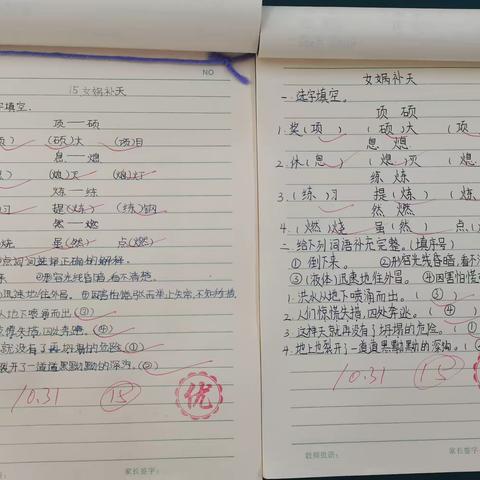 NO
15 女娲补天
字填空.
项——硕
) (硕)大 (项)目
息——熄
) (熄)灭 (熄)灯
炼——练
习 提(炼) (练)钢
然——燃
烧 虽(然) 点(燃)
点词词选择正确的解释.
来 ②形容光线昏暗,看不清楚.
迅速地往外冒. ④因害怕慌张而举止失常,不知所措.
从地下喷涌而出.(③)
惊慌失措,四处奔逃.(④)
就没有了再坍塌的危险.(①)
裂开了一道道黑黝黝的深沟.(②)
10.31
15
优
家长签字:
女娲补天
一、选字填空。
项 硕
1.奖(项) (硕)大 (项
息 熄
2.休(息) (熄)灭 (熄
练 炼
3.(练)习 提(炼) (炼
然 燃
4.(燃)烧 虽(然) 点(
二、给下列词语补充完整。(填序号)
①倒下来。 ②形容光线昏暗,看不
③(液体)迅速地往外冒。 ④因害怕慌
1.洪水从地下喷涌而出。(③)
2.人们惊慌失措,四处奔逃。(④
3.这样天就再没有了坍塌的危险。(①
4.地上也裂开了一道道黑黝黝的深沟。(②
10.31
15
教师批语:
家长签字